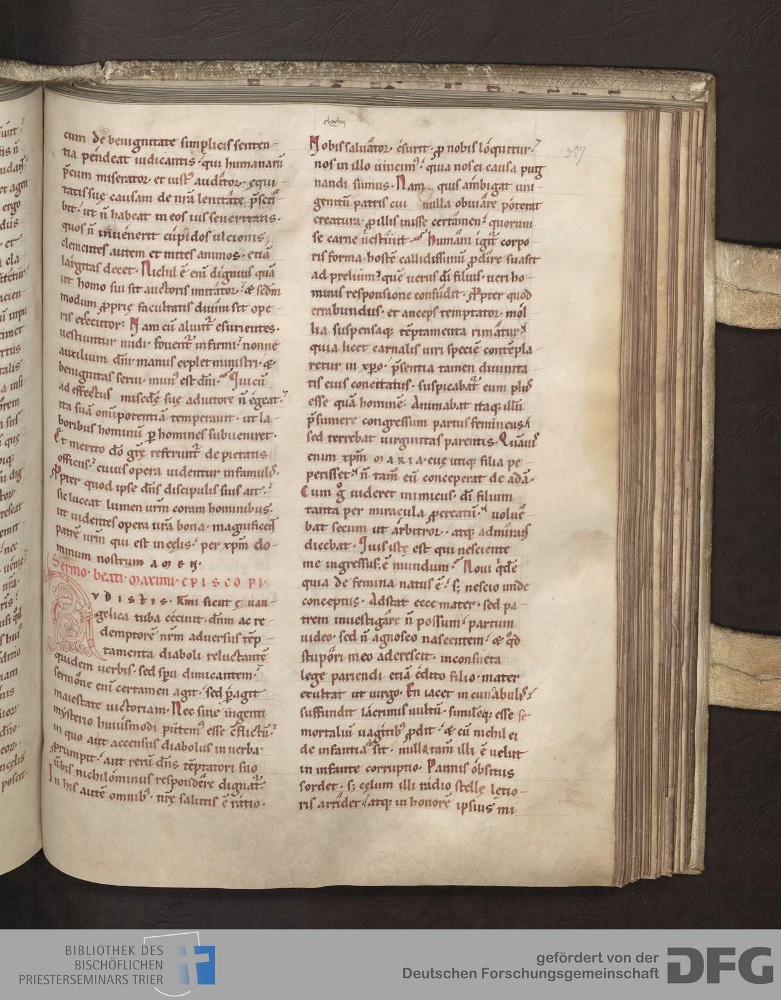 cum de benignitate simplicis senten-
tia pendeat iudicantis. qui humanarū
p̄cum miserator. et iust᷒ auditor. equi-
tatis suę causam de nr̄a lenitate p̄scri-
bit. ut n̄ habeat in eos ius seueritatis.
quos n̄ inuenerit cupidos ulcionis;
clementes autem et mites animos. etiā
largitas decet. Nichil ē eni dignius quā
ut homo sui sit auctoris imitator. & sedm
modum proprię facultatis diuini sit ope-
ris executor. Nam cū alunt᷑ esurientes.
uestiuntur nudi. fouent᷑ infirmi. nonne
auxilium dn̄i manus explet ministri. &
benignitas serui. mun᷒ est dn̄i. Qui cū
ad effectus misedę suę adiutore n̄ egeat.
ita suā omipotentiā temperauit. ut la-
boribus hominū p̱ homines subueniret.
Et merito dō grę referunt᷑ de pietatis
officiis. cuius opera uidentur in famulis.
Propter quod ipse dn̄s discipulis suis ait.
sic luceat lumen urm coram hominibus.
ut uidentes opera ur̄a bona. magnificēt
patrē urm qui est in cęlis. per xpm̄ do-
minum nostrum AMEN.
Sermo. beati. maximi. EPISCOPI
AVDISTIS. Kmi sicut euuan-
gelica tuba cecinit. dn̄m ac re-
demptorē nrm adversus tēp-
tamenta diaboli reluctantē
quidem uerbis. sed spu dimicantem.
sermōne eni certamen agit. sed p̱agit
maiestate uictoriam. Nec sine ingenti
mysterio huiusmodi putem᷒ esse cflictū.
in quo aut accensus diabolus in uerba
prorumpit. aut reru dn̄s tēptatori suo
uerbis nichilominus respondēre dignat᷑.
In his autē omnib᷒. nrę salutis ē ratio.
Nobis saluator esurit. pro nobis loquitur.
nos in illo uincim᷒. quia nos ei causa pug
nandi sumus. Nam quis ambigat uni-
genitū patris cui nulla obuiare poterat
creatura. pro illis inisse certamen. quorum
se carne uestiuit. Humani igit᷑ corpo
ris forma. hostē callidissimū prodire suasit
ad preliuim. quē uerus di filius. ueri ho-
minis responsione confudit. Propter quod
errabundus. et anceps temptator. mol
lia suspensaq; tēptamenta rimatur.
quia licet carnalis uiri speciē contēpla
retur in xpo. p̄sentia tamen diuinita
tis eius concitatus. suspicabat᷑ eum plus
esse quā hominē. Animabat itaq; illū
p̄sumere congressum partus femineus.
sed terrebat uirginitas parentis. Quāuis
enim xpm̄ MARIA. euę utiq; filia pe
perisset. n̄ tam̄ eū conceperat de adā.
Cum g̊ uideret inimicus. di filium
tanta per miracula procreatū. uolue-
bat secum ut arbitror. atq; admirans
dicebat. Quis iste est qui nesciente
me ingressus. ē mundum. Noui qidē
quia de femina natus ē. s; nescio unde
conceptus. Adstat ecce mater. sed pa-
trem inuestigāre n̄ possum. partum
uideo. sed n̄ agnosco nascentem. & qd
stupōri meo adcrescit. inconsueta
lege pariendi etiā ędito filio. mater
exultat ut uirgo. En iacet in cunabulis.
suffundit lacrimis uultū. similēq; esse se
mortaliū uagitib᷒ prodit. & cū nichil ei
de infantia desit. nulla tam̄ illi ē uelut
in infante corruptio. Pannis obsitus
sordet. s; cęlum illi radio stellę letio-
ris arridet. atq; in honorē ipsius mi
357
BIBLIOTHEK DES
BISCHÖFLICHEN
PRIESTERSEMINARS TRIER
gefördert von der
Deutschen Forschungsgemeinschaft
DFG